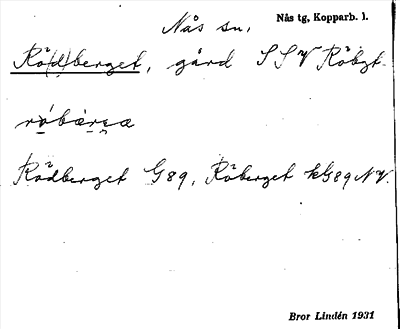 Nås sn. Nås tg, Kopparb. l.
Rö(d)berget, gård SSV Röbgt.
Rödberget G89, Röberget kG89NV.
Bror Lindén 1931